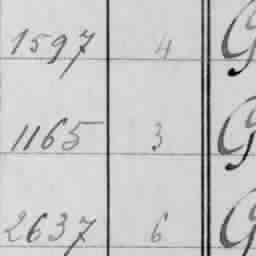 1597 4 G
1165 3 G
2637 6 G